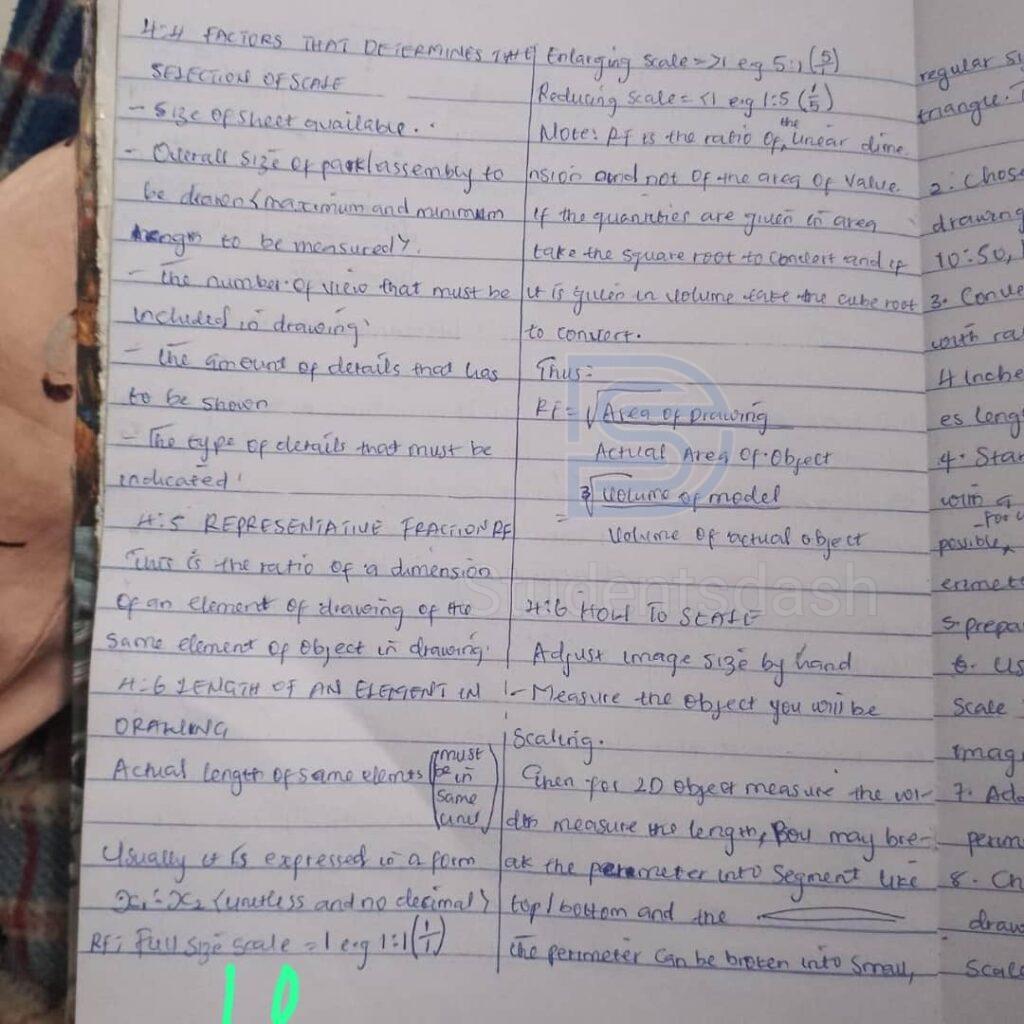 4:4 FACTORS THAT DETERMINES THE
SELECTION OF SCALE
- Size of sheet available.
- Overall size of part/assembly to
be drawn (maximum and minimum
length to be measured).
- The number of view that must be
included in drawing
- The amount of details that has
to be shown
- The type of details that must be
indicated
4:5 REPRESENTATIVE FRACTION RF
This is the ratio of a dimension
of an element of drawing of the
same element of object in drawing.
4:6 LENGTH OF AN ELEMENT IN
DRAWING
Actual length of same elemts (must
be in
same
unit)
Usually it is expressed in a form
x₁:x₂ (unitless and no decimal)
RF: Full size scale = 1 e.g 1:1 (1/1)
Enlarging scale => 1 eg 5:1 (5/1)
Reducing scale = <1 e.g 1:5 (1/5)
Note: RF is the ratio of the linear dime
nsion and not of the area of value.
if the quantities are given in area
take the square root to convert and if
it is given in volume take the cube root
to convert.
Thus:
RF = √Area of Drawing
Actual Area of Object
= ∛Volume of model
Volume of actual object
4:6 HOW TO SCALE
Adjust image size by hand
1- Measure the object you will be
scaling.
Then for 2D object measure the wi-
dth measure the length, You may bre-
ak the perimeter into segment like
top/bottom and the
The perimeter can be broken into small,
regular
triangle.
2. Chose
drawing
10:50,
3. Conve
with ra
4 inche
es leng
4. Star
with a
- For
possible
erimet
5. prepa
6. Us
scale
imag
7. Ad
perim
8. Ch
draw
scale
Studentsdash
10